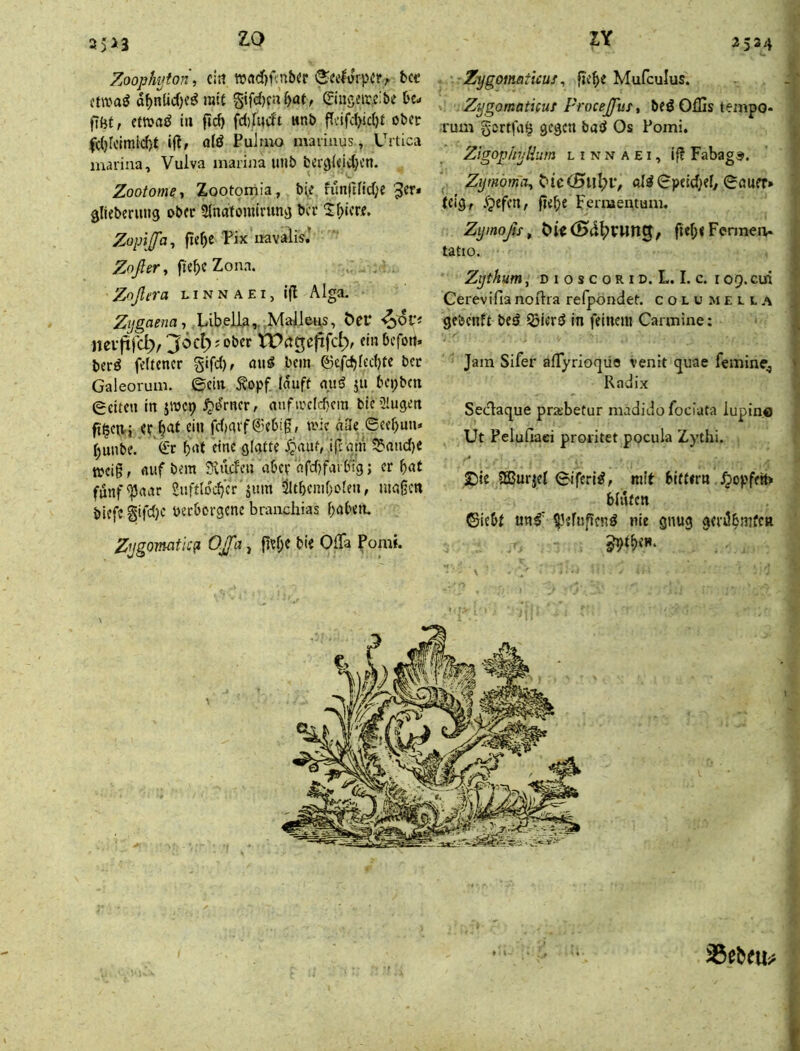 2523
ZO
ZY
2524
Zoophyton, ein wachsender Seekörper, der
etwas ähnliches mit Fischen hat, Eingeweide be-
sitzt, etwas in sich schluckt und fleischicht oder
schleimicht ist, als Pulmo marinus, Urtica
marina, Vulva marina und dergleichen.
Zootome, Zootomia, die künstliche Zer-
gliederung oder Anatomirung der Thiere.
Zopissa, siehe Pix navalis.
Zoster, siehe Zona.
Zostera LINNAEI, ist Alga.
Zygaena, Libella, Malleus, der Hör-
nerfisch, Joch- oder Wagefisch, ein beson-
ders seltener Fisch, aus dem Geschlechte der
Galeorum. Sein Kopf läuft aus zu beyden
Seiten in zwey Hörner, auf welchem die Augen
sitzen; er hat ein scharf Gebiß, wie alle Seehun-
hunde. Er hat eine glatte Haut, ist am Bauche
weiß, auf dem Rücken aber aschfarbig; er hat
fünf Paar Luftlöcher zum Athemholen, maßen
diese Fische verborgene branchias haben.
Zygomatica Ossa, siehe die Ossa Pomi.
Zygomaticus, siehe Musculus.
Zygomaticus Processus, des Ossis tempo-
rum Fortsatz gegen das Os Pomi.
Zigophyllum LINNAEI, ist Fabago.
Zymoma, die Gühr, als Speichel, Sauer-
teig, Hefen, siehe Fermentum.
Zymosis, die Gährung, siehe Fermen-
tatio.
Zythum, DIOSCORID. L. I. c. 109. cui
Cerevisia nostra respondet. COLUMELLA
gedenkt des Biers in seinem Carmine:
Jam Siser assyrioque venit quae semine,
Radix
Sectaque præbetur madido sociata lupino
Ut Pelusiaci proritet pocula Zythi.
Die Wurzel Siseris, mit bittern Hopfen-
blüten
Giebt uns Pelusiens nie gnug gerühmten
Zythen.
Bedeu-